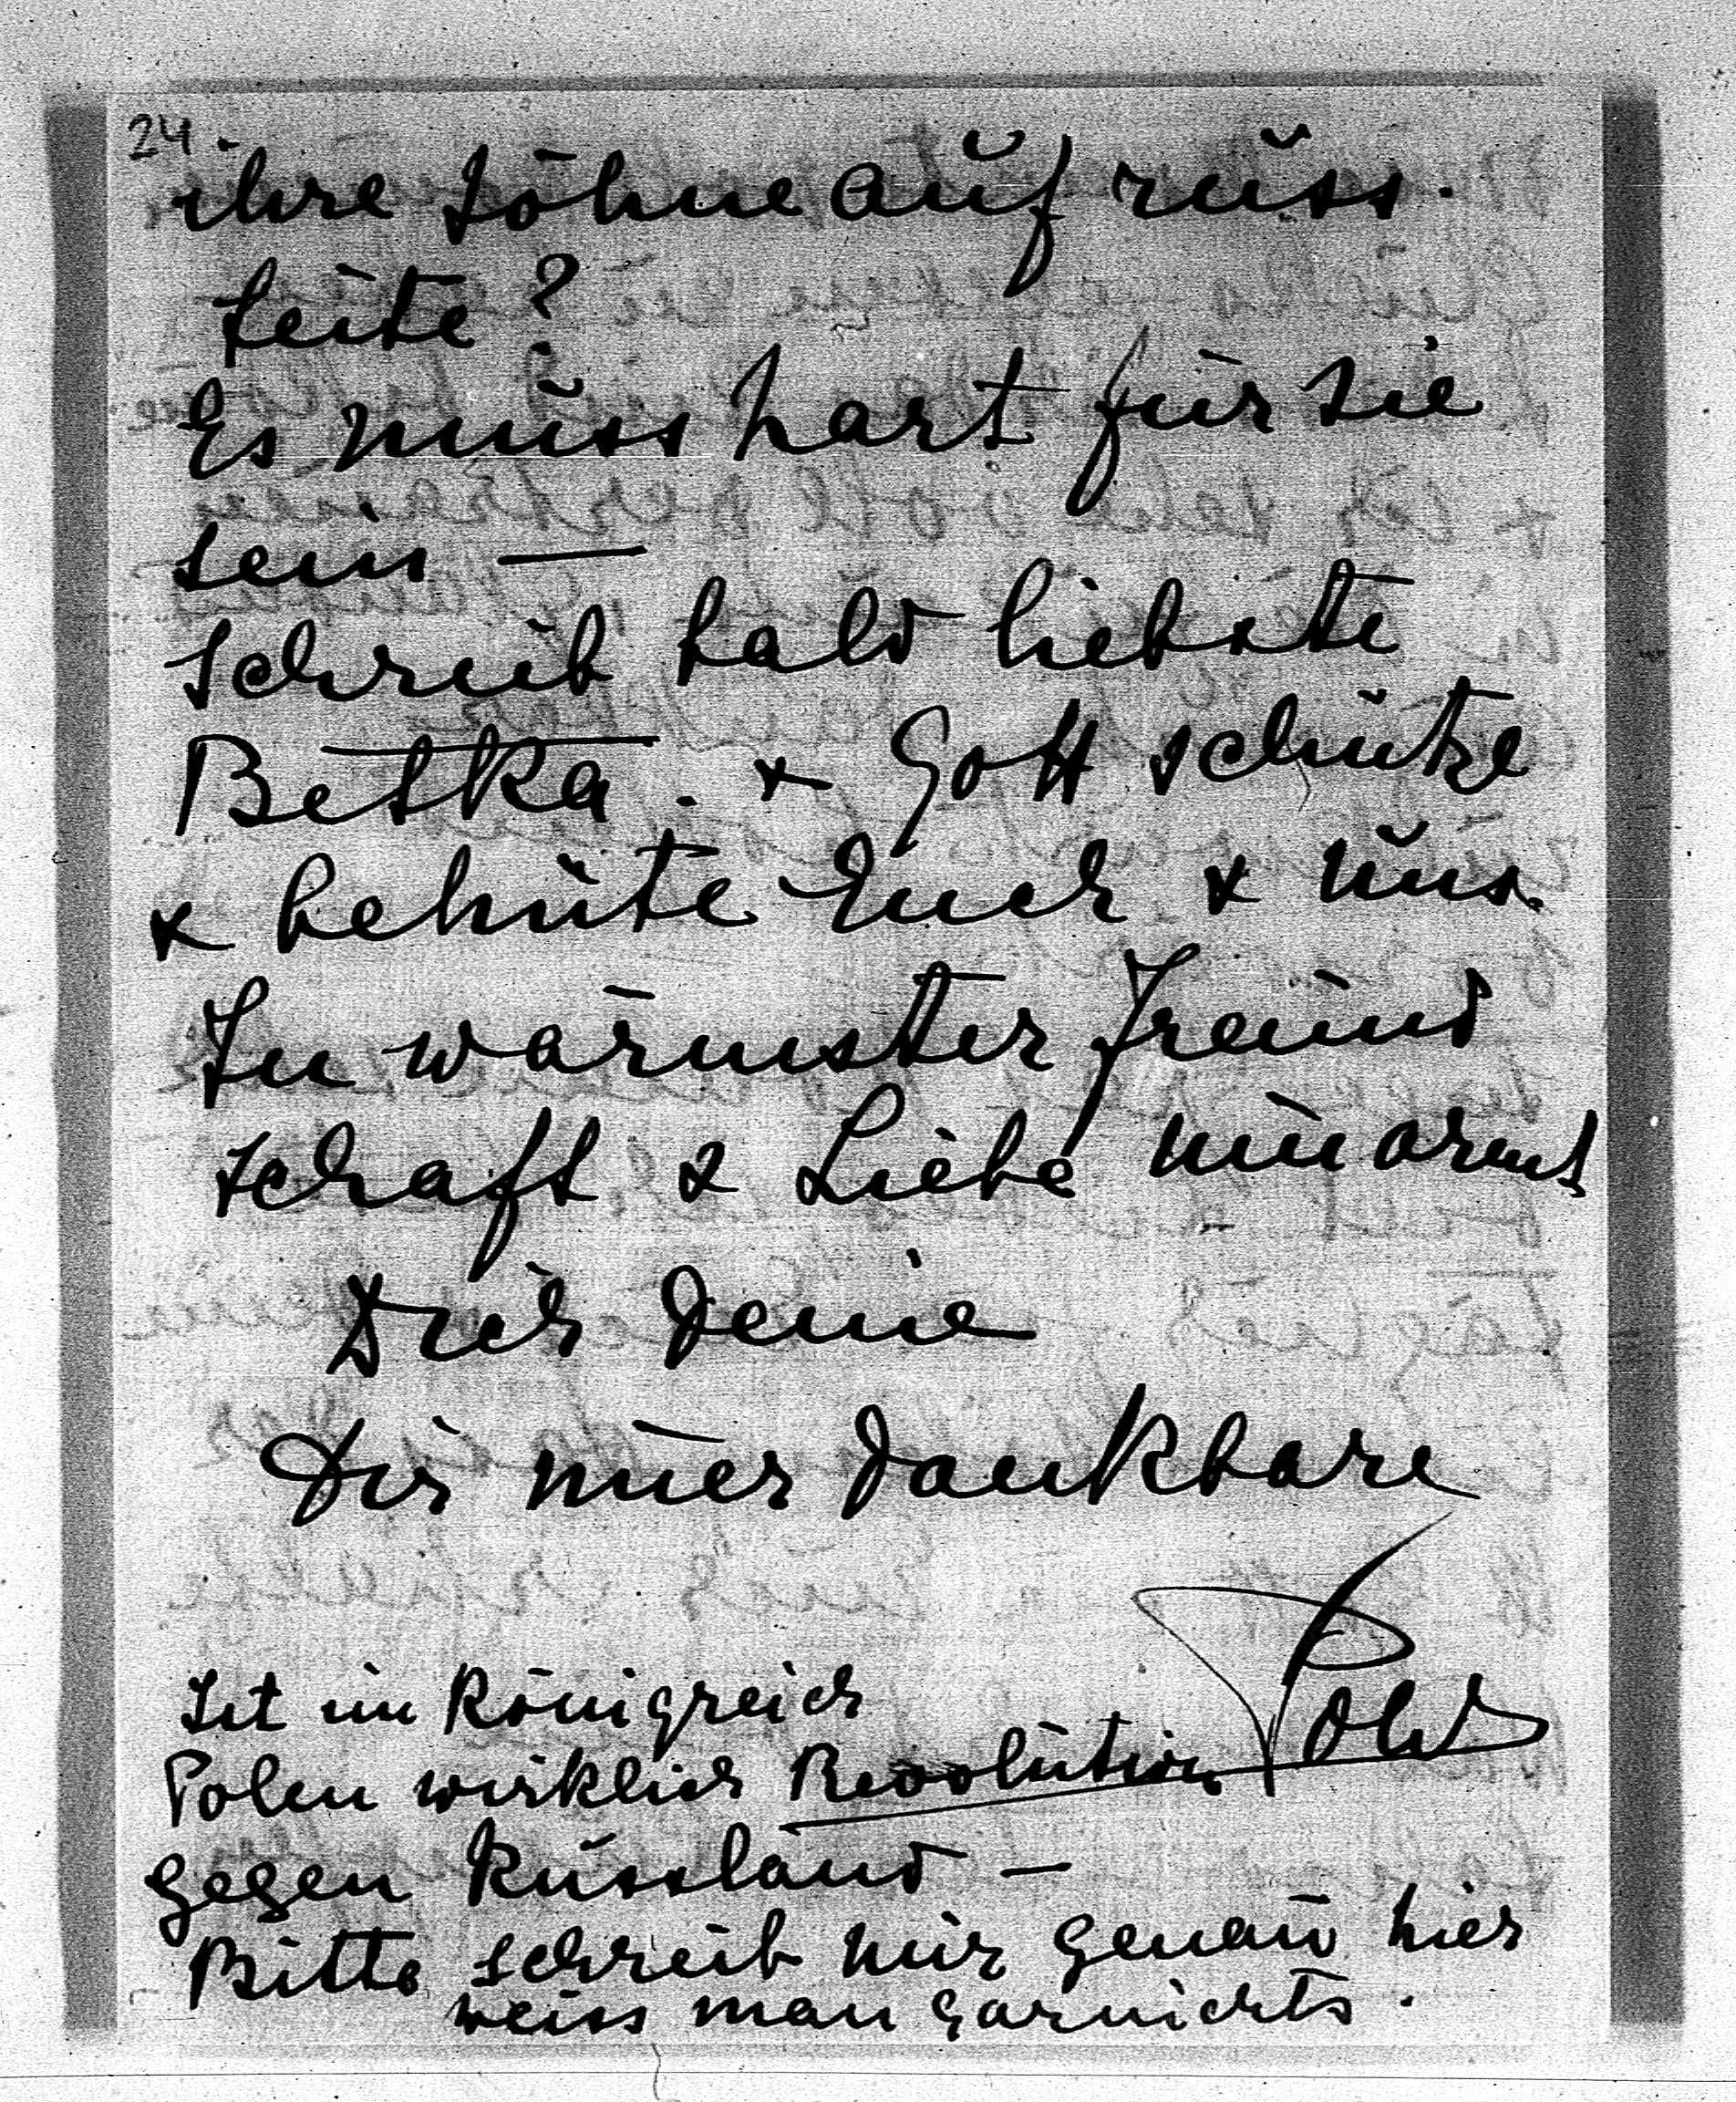 24.
ihre Söhne auf russ.
Seite?
Es muss hart für sie
sein —
Schreib bald liebste
Betka. & Gott schütze
& behüte Euch & uns.
In wärmster Freund
schaft & Liebe umarmt
Dich Deine
Dir immer dankbare
Ist im Königreich
Polen wirklich Revolution
gegen Russland —
Bitte schreib mir genau hier
weiss man garnichts.